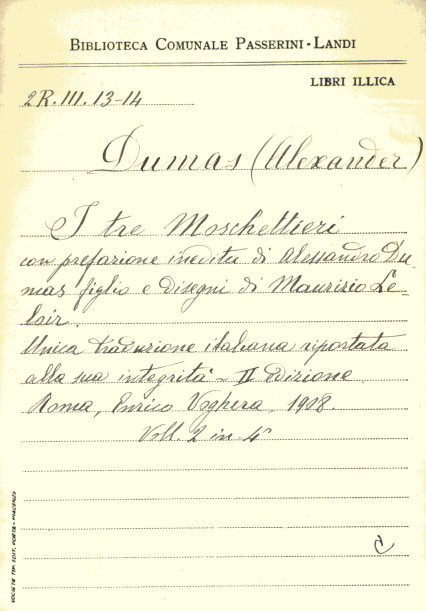 BIBLIOTECA COMUNALE PASSERINI-LANDI
LIBRI ILLICA
2R.III.13-14
Dumas (Alexander)
I tre Moschettieri
con prefazione inedita di Alessandro Du-
mas figlio e disegni di Maurizio Le-
loir.
Unica traduzione italiana riportata
alla sua integrità - II edizione
Roma, Enrico Voghera, 1908.
Voll. 2 in 4°
SOCIETÀ TIP. EDIT. PORTA - PIACENZA